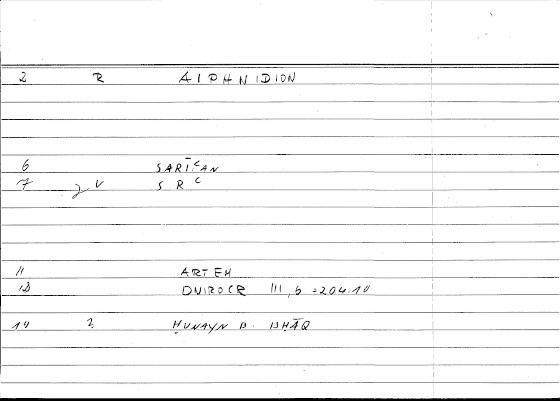 2 R AIPHNIDION
6 SARĪʿAN
7 V SRʿ
11 ARTEM
III, 6 = 204.10
14 2 ḤUNAYN B. ISḤĀQ